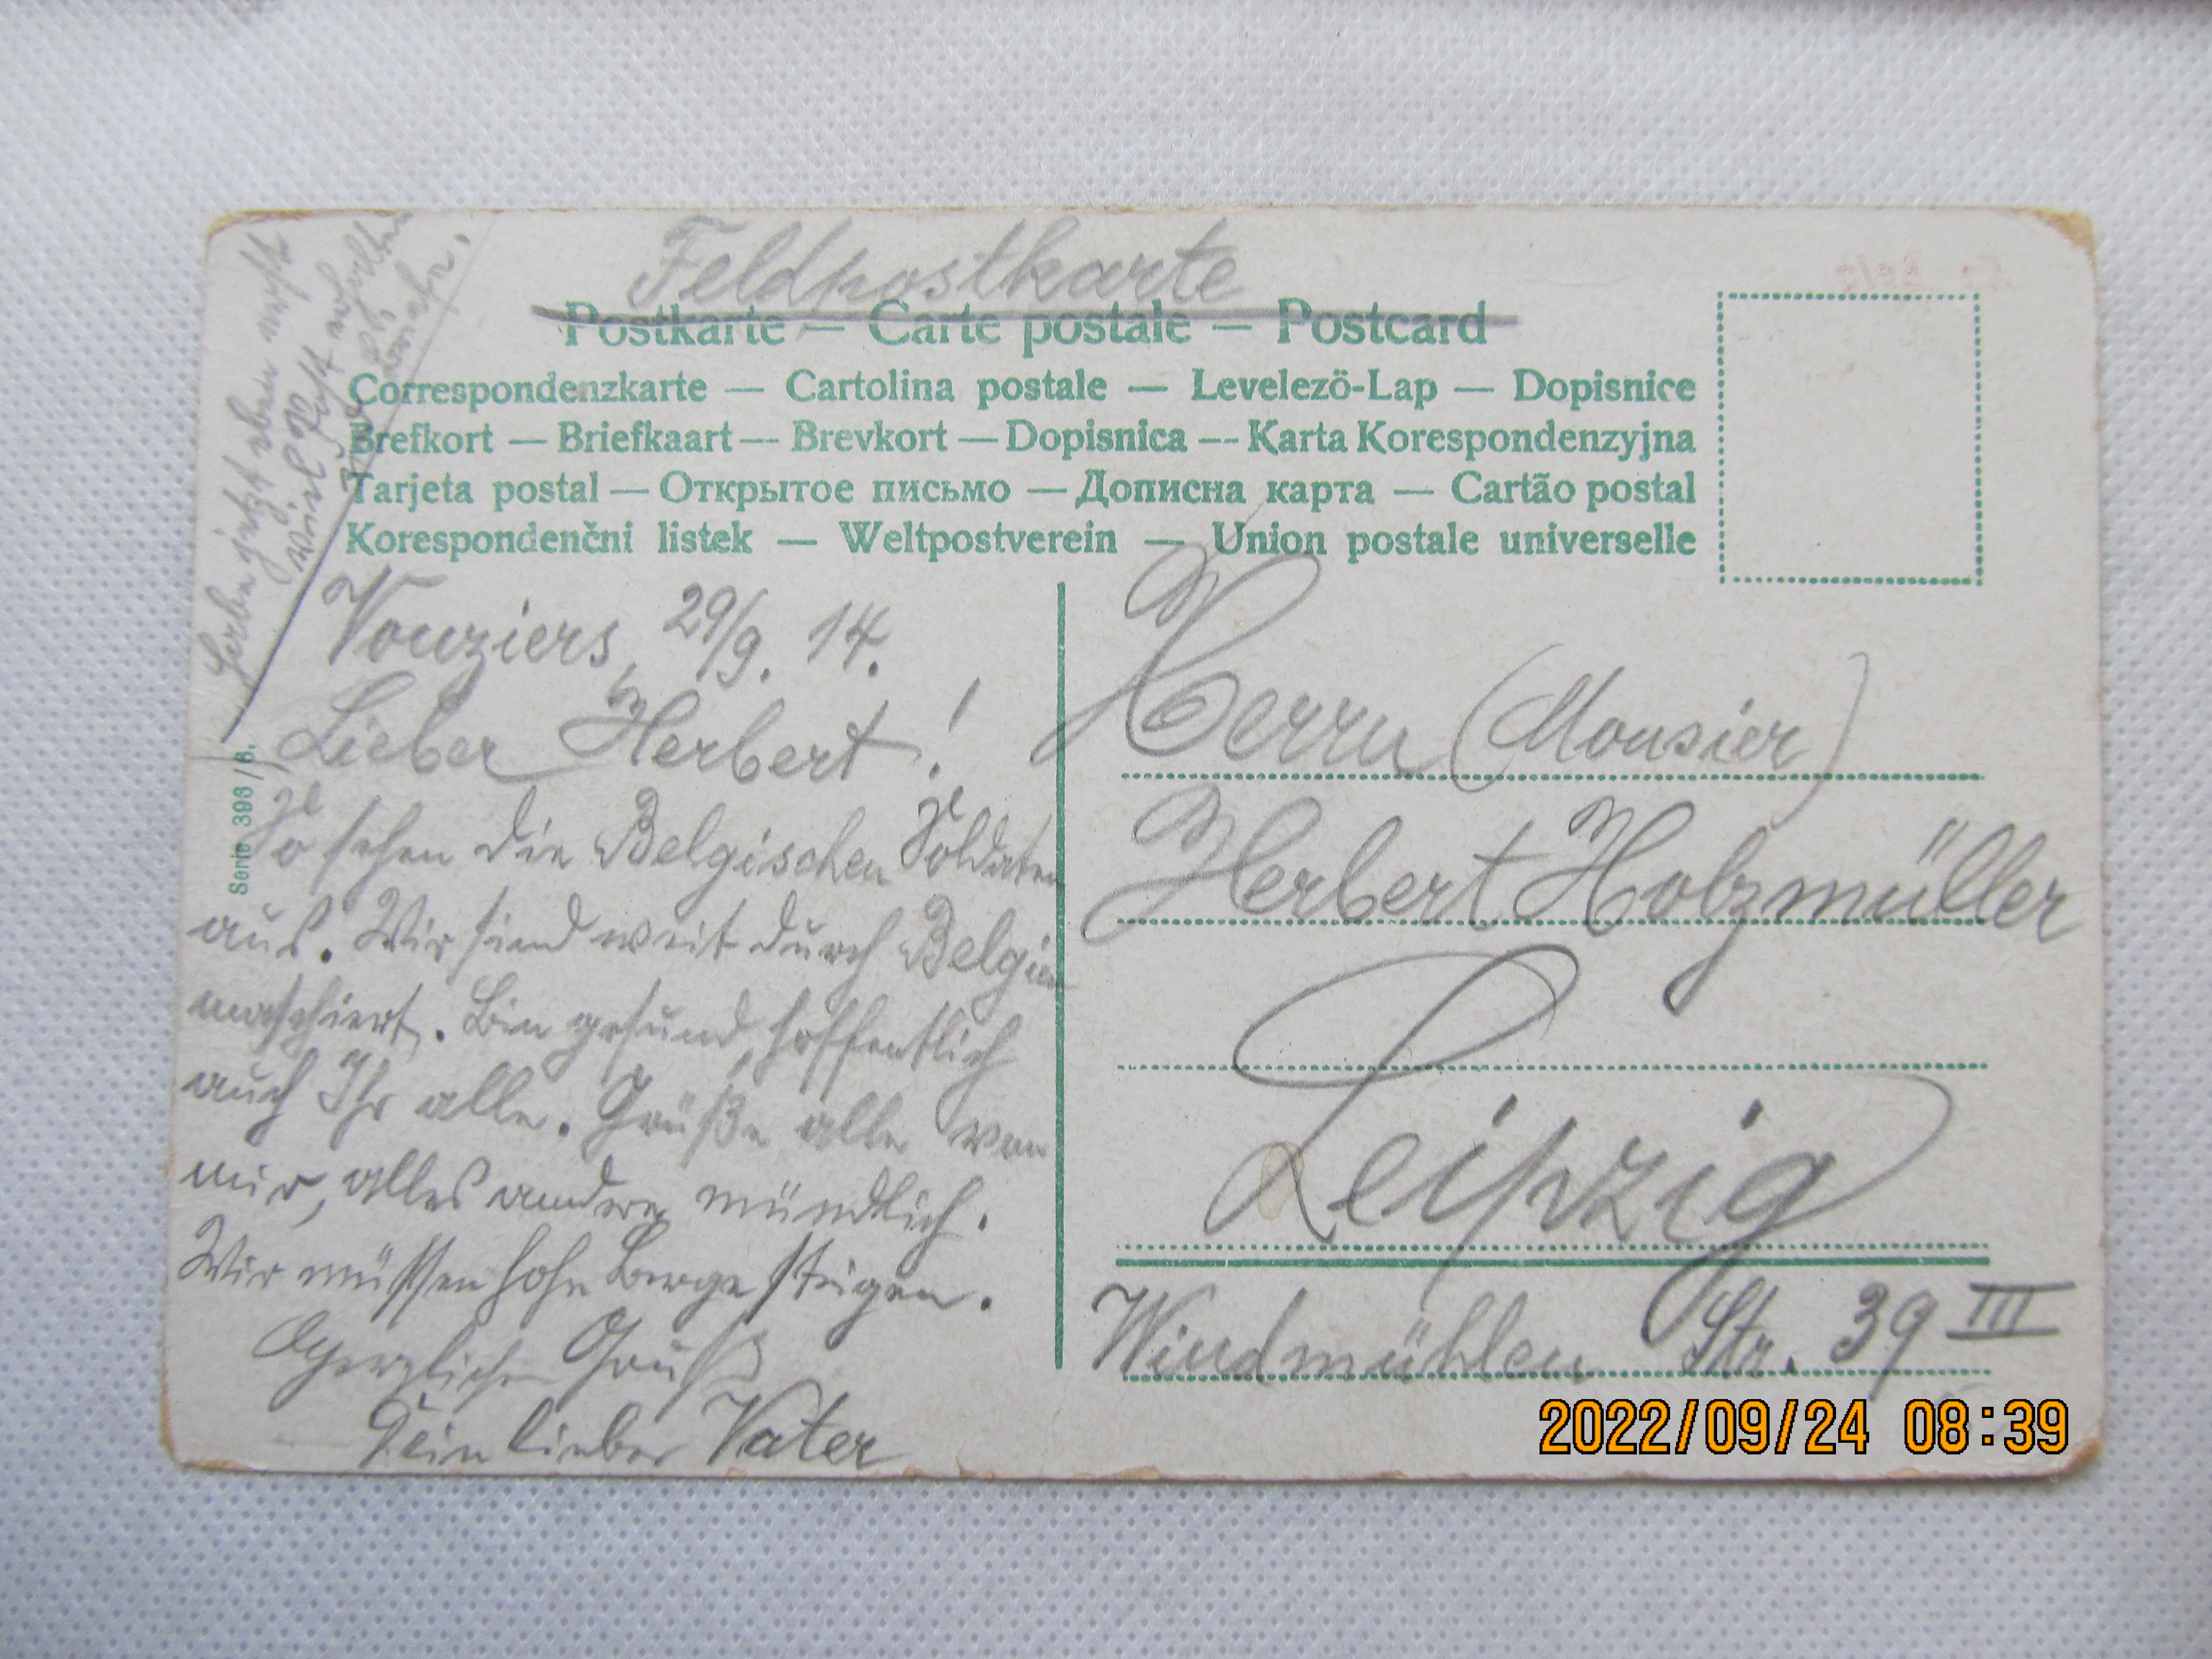 Feldpostkarte
Postkarte — Carte postale — Postcard
Correspondenzkarte — Cartolina postale — Levelezö-Lap — Dopisnice
Brefkort — Briefkaart — Brevkort — Dopisnica — Karta Korespondenzyjna
Tarjeta postal — Открытое письмо — Дописна карта — Cartão postal
Korespondenčni listek — Weltpostverein — Union postale universelle
Habe jetzt eben erst
viel Post erhalten
Vouziers, 29/9. 14.
Lieber Herbert!
So sehen die Belgischen Soldaten
aus. Wir sind weit durch Belgien
maschiert. Bin gesund, hoffentlich
auch Ihr alle. Grüße alle von
mir, alles andere mündlich.
Wir müssen hohe Berge steigen.
Herzlichen Gruß
Dein lieber Vater
Serie 396/6.
Herrn (Monsier)
Herbert Holzmüller
Leipzig
Windmühlen Str. 39 III
2022/09/24 08:39